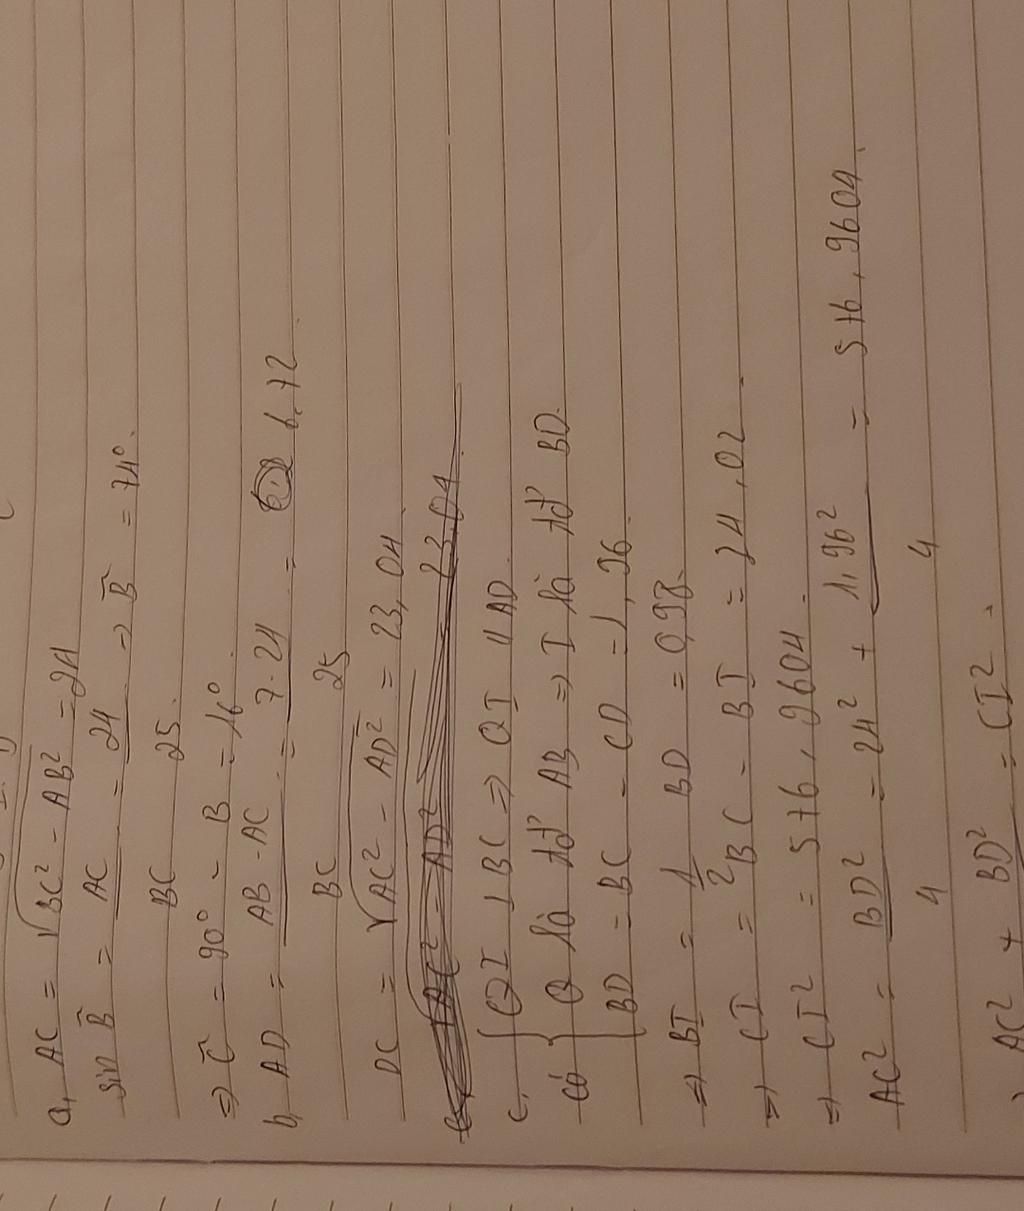 a, AC = √BC² - AB² = 24
sin B̂ = AC/BC = 24/25 → B̂ = 74°.
=> Ĉ = 90° - B = 16°.
b, AD = AB · AC/BC = 7 · 24/25 = 6,72
DC = √AC² - AD² = 23,04
√AC² - AD² 23,04
c, QI ⊥ BC => QI // AD
có Q là tđ AB => I là tđ BD.
BD = BC - CD = 1,96.
=> BI = 1/2 BD = 0,98.
=> CI = BC - BI = 24,02.
=> CI² = 576,9604.
AC² = BD²/4 = 24² + 1,96²/4 = 576,9604.
AC² + BD² = CI².